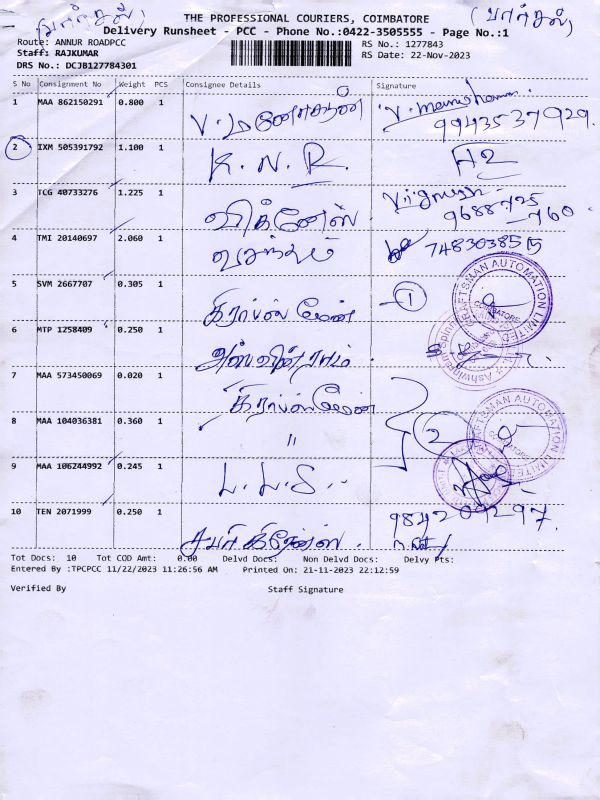 (பார்சல்) THE PROFESSIONAL COURIERS, COIMBATORE (பார்சல்)
Delivery Runsheet - PCC - Phone No.:0422-3505555 - Page No.:1
Route: ANNUR ROADPCC RS No.: 1277843
Staff: RAJKUMAR RS Date: 22-Nov-2023
DRS No.: DCJB127784301
S No Consignment No Weight PCS Consignee Details Signature
1 MAA 862150291 0.800 1 V. மனோகரன்
9943537929
2 IXM 505391792 1.100 1 K.N.R.
3 TCG 40733276 1.225 1 விக்னேஸ் 9688725
760
4 TMI 20140697 2.060 1 வசந்தம் 7483038515
5 SVM 2667707 0.305 1 கிராப்ஸ்மேன் 1
CRAFTSMAN AUTOMATION LIMITED
COIMBATORE
6 MTP 1258409 0.250 1 அஸ்வின்ராம்
7 MAA 573450069 0.020 1 கிராப்ஸ்மேன்
8 MAA 104036381 0.360 1 " 2
CRAFTSMAN AUTOMATION LIMITED
9 MAA 106244992 0.245 1 L.L.S.
10 TEN 2071999 0.250 1 9842209297
Tot Docs: 10 Tot COD Amt: 0.00 Delvd Docs: Non Delvd Docs: Delvy Pts:
Entered By :TPCPCC 11/22/2023 11:26:56 AM Printed On: 21-11-2023 22:12:59
Verified By Staff Signature